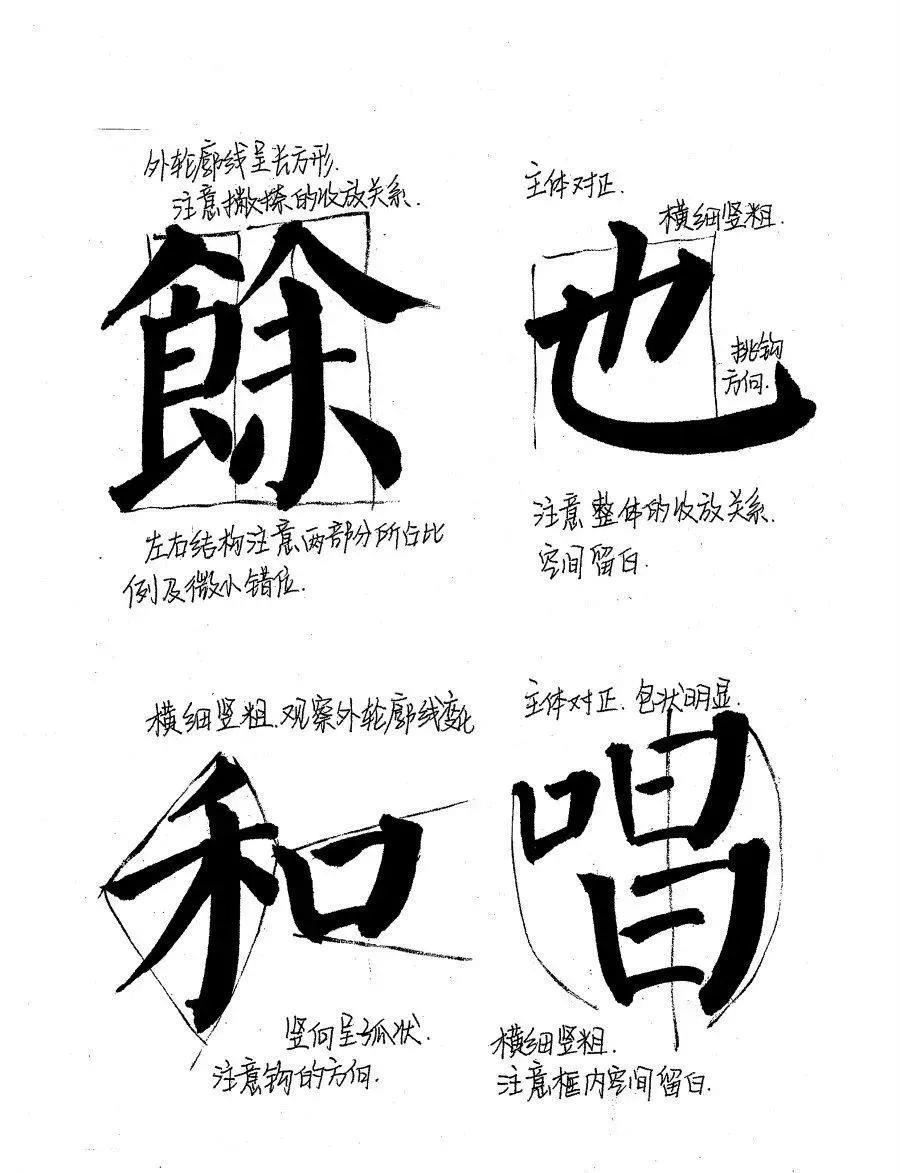 外轮廓线呈长方形.
注意撇捺的收放关系.
餘
左右结构注意两部分所占比
例及微小错位.
主体对正.
横细竖粗.
也
挑钩
方向.
注意整体的收放关系.
空间留白.
横细竖粗.观察外轮廓线变化
和
竖向呈弧状.
注意钩的方向.
主体对正.包状明显.
唱
横细竖粗.
注意框内空间留白.